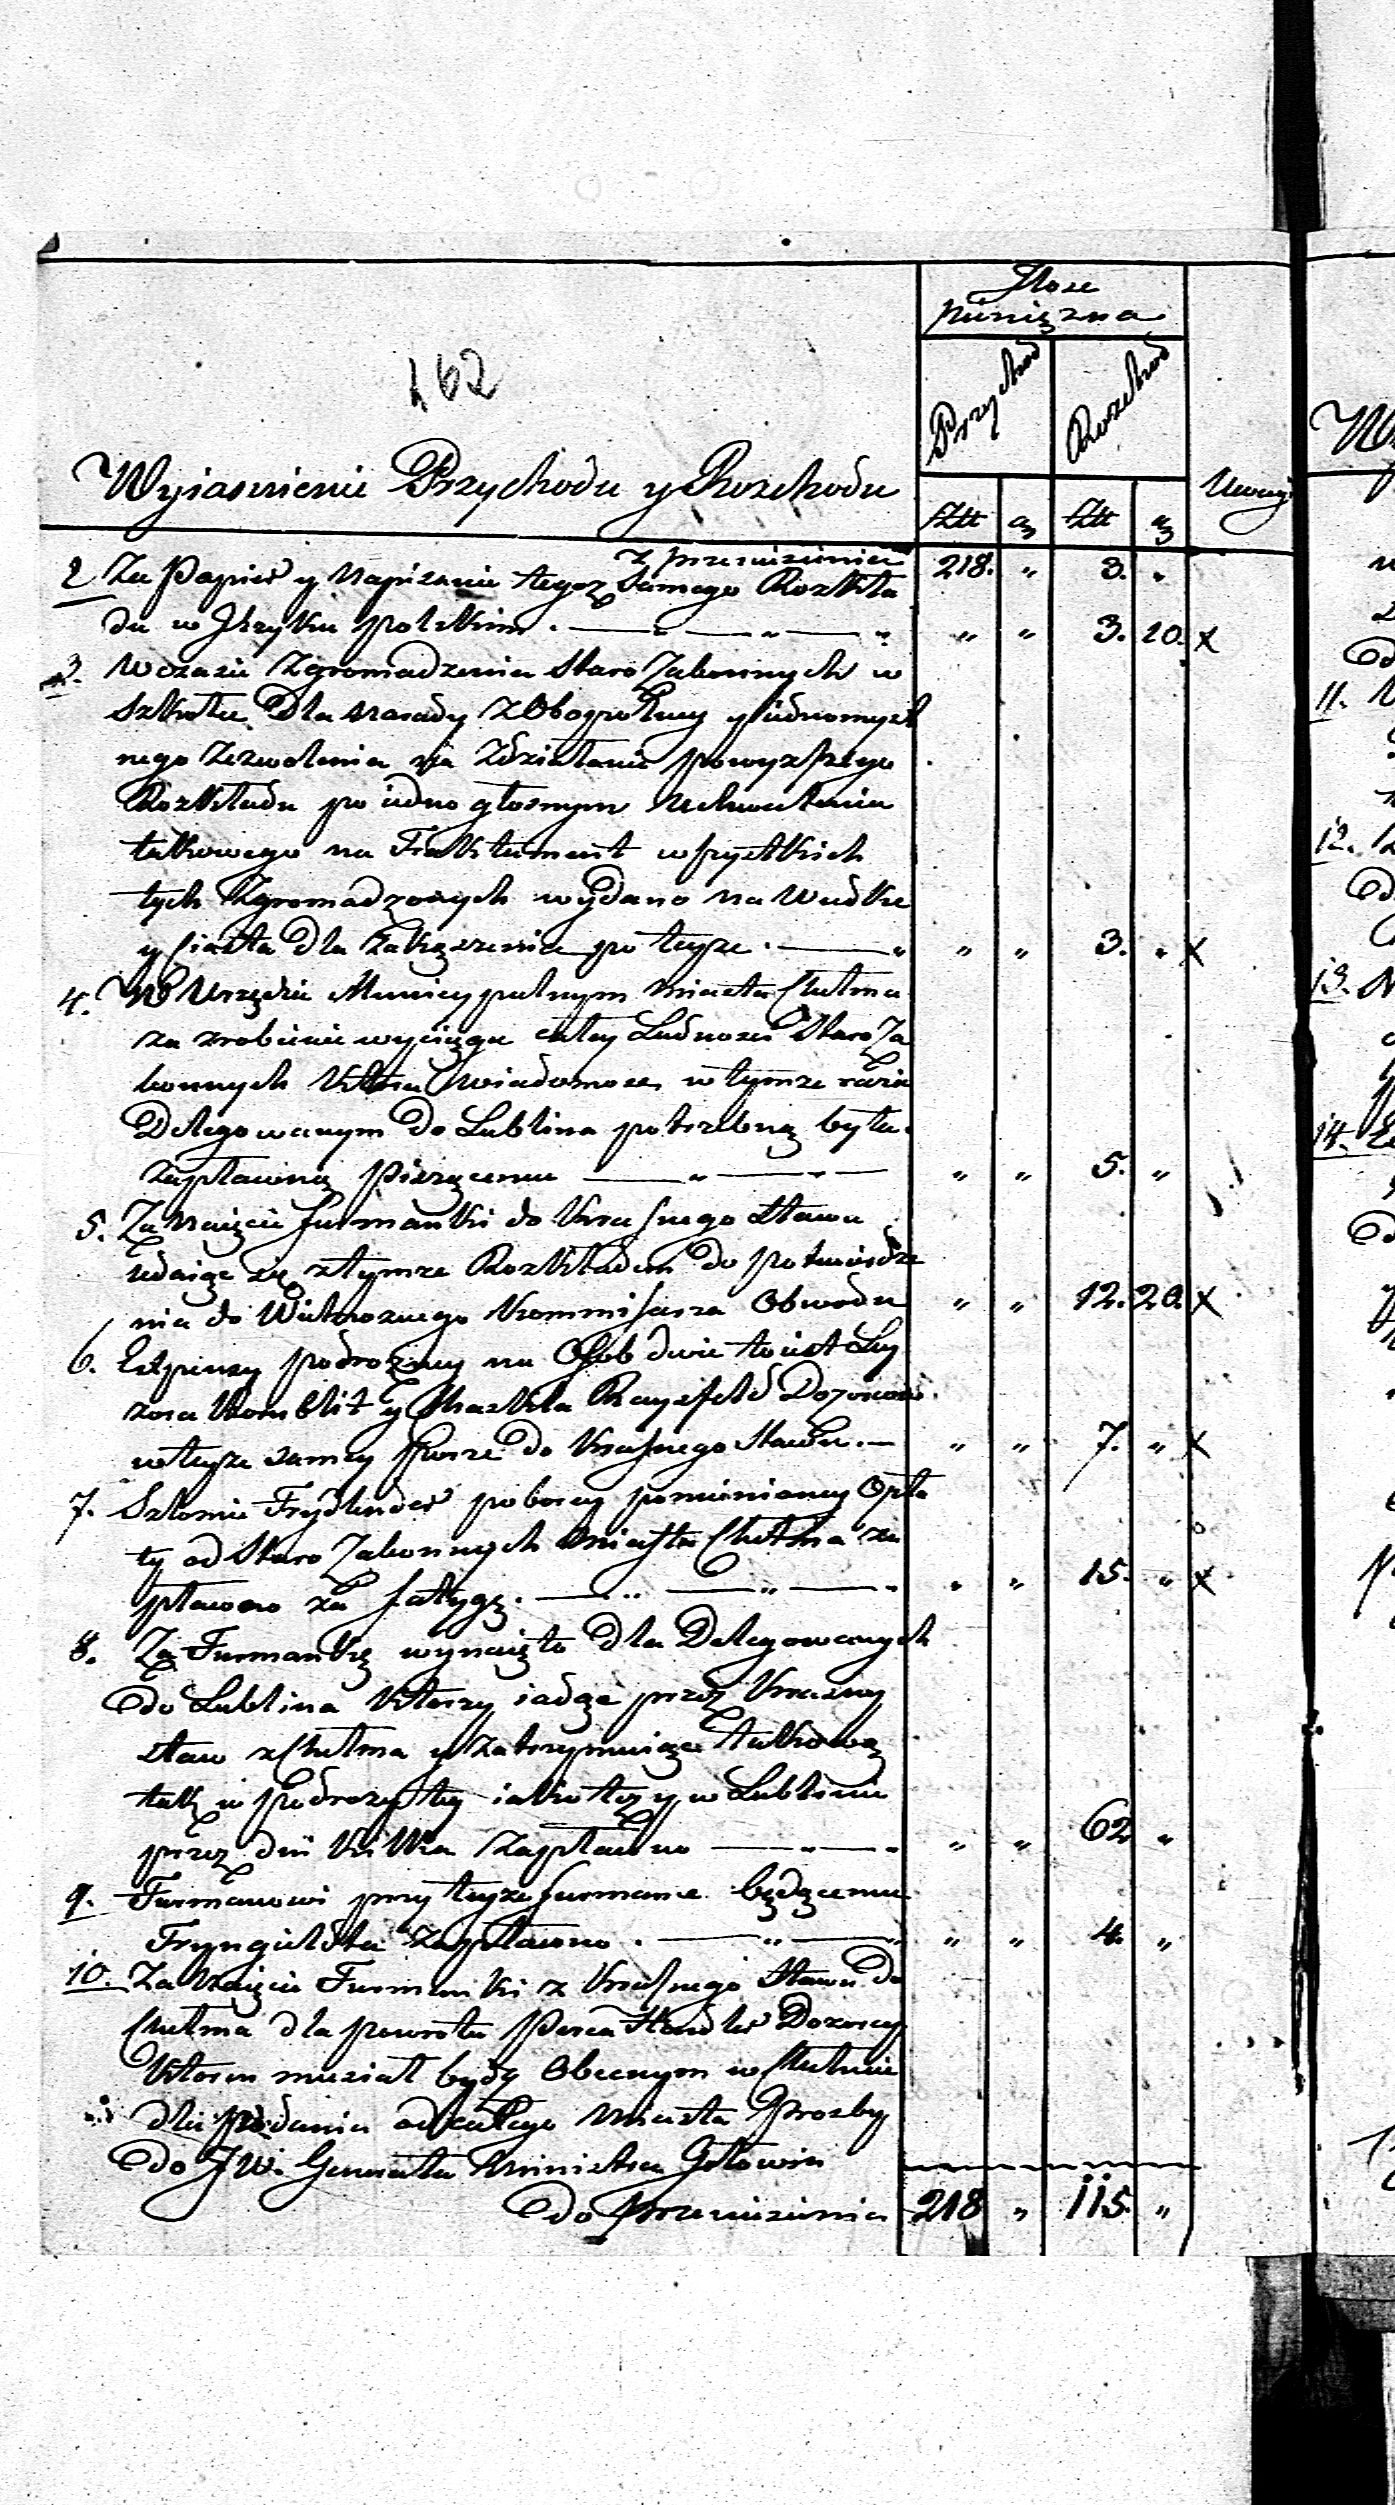 Ilosc
pieniężna
162
Przychod Rozchod
Wyiasnienie Przychodu y Rozchodu
Złł gr Złł gr Uwagi
z przeniesienia 218. " 3. "
2 Za Papier y Napisanie tegoż Samego Rozkła
du w Języku polskim. " " 3. 10. x
3. W czasie Zgromadzenia Staro Zakonnych w
Szkole Dla Narady z Obopolney y iednomysl
nego Zezwolenia na Zdziałanie powyższego
Rozkładu po iedno głosnym Uchwaleniu
takowego na Traktament wszystkich
tych Zgromadzonych wydano na Wudke
y Ciasta Dla Zakąszenia po teyże. " " 3. " x
4. W Urzędzie Municypalnym Miasta Chełma
za zrobienie wyciągu całey Ludnosci Staro Za
konnych Ktora Wiadomosc w tymże razie
Delegowanym do Lublina potrzebną była.
zapłacono Piszącemu " " 5. "
5. Za Naięcie furmanki do Krasnego Stawu
udaiąc się z tymże Rozkładem do potwierdze
nia do Wielmoznego Kommissarza Obwodu " " 12. 20. x
6. Expensy podrożney na Osob dwie to iest Ley
zora Kornblit y Maszkla Rayzfeld Dozorcow
w teyże samey Furze do Krasnego Stawu. " " 7. " x
7. Szlomie Frydlender poborcy pomienioney Opła
ty od Staro Zakonnych Miasta Chełma za
płacono za fatygę. " " 15. " x
8. Za Furmankę wynaięto dla Delegowanych
do Lublina Ktorzy iadąc przez Krasny
staw z Chełma y zatrzymuiąc takową
tak w podrozy tey iako też y w Lublinie
przez dni kilka zapłacono " " 62 "
9. Furmanowi przy teyże furmance będącemu
Tryngieldu zapłacono. " " 4. "
10. Za Naięcie Furmanki z Krasnego Stawu do
Chełma dla powrotu Herca Handler Dozorcy
Ktoren musiał bydz Obecnym w Chełmie
dla podania od całego Miasta Prozby
do JW. Generała Ministra Gołowin
do przeniesienia 218 " 115. "
11.
12.
13.
14.